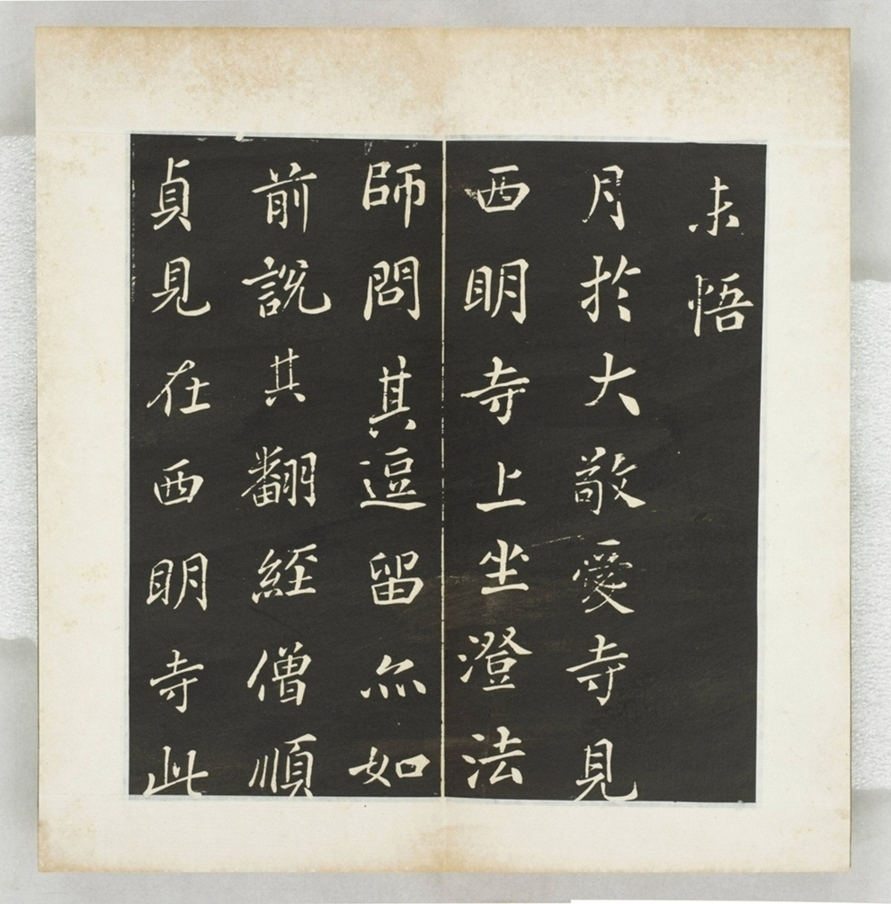 未悟
月於大敬愛寺見
西明寺上坐澄法
師問其逗留亦如
前說其翻經僧順
貞見在西明寺此